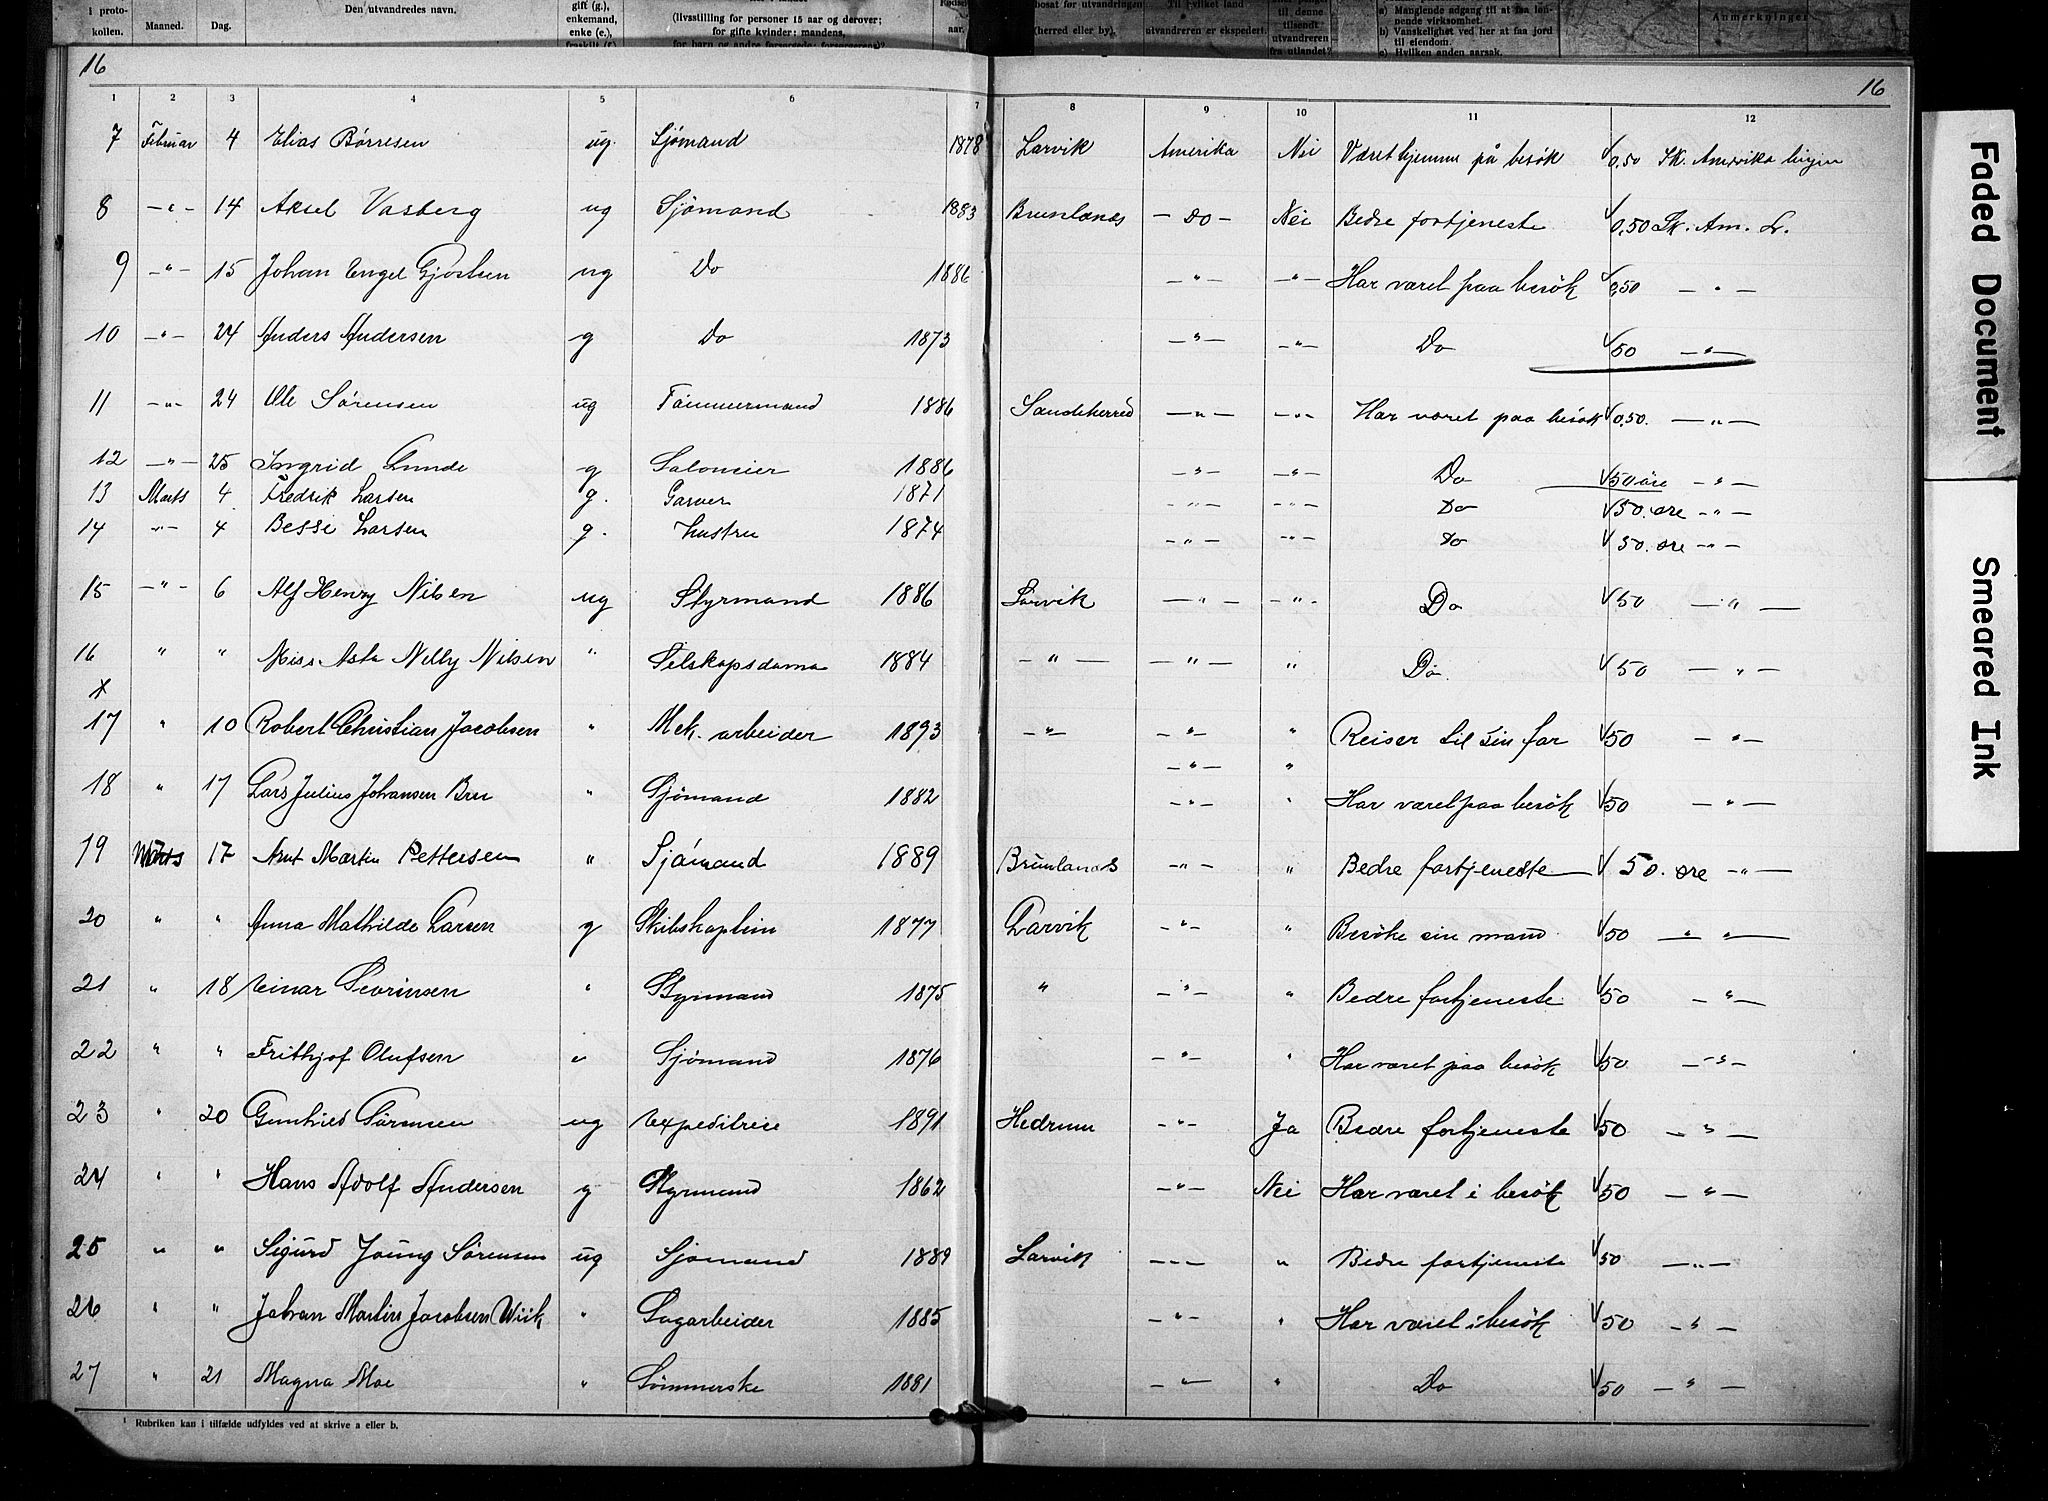 i proto- Maaned. Dag. Den utvandredes navn. gift (g.), Til hvilket land a) Manglende adgang til at faa løn-
kollen. enkemand, (livsstilling for personer 15 aar og derover; bosat før utvandringen til denne nende virksomhet. Anmerkninger
enke (e.), for gifte kvinder: mandens, aar. (herred eller by). utvandreren er ekspedert. tilsendt b) Vanskelighet ved her at faa jord
fraskilt (f.) for barn og andre forsørgede: forsørgerens) utvandreren til eiendom.
fra utlandet? c) Hvilken anden aarsak.
16 16
1 2 3 4 5 6 7 8 9 10 11 12
7 Februar 4 Elias Børresen ug. Sjømand 1878 Larvik Amerika Nei Været hjemme på besøk 0,50 Sk. Amerika linjen
8 -"- 14 Aksel Vasberg ug Sjømand 1883 Brunlanes - Do - Nei Bedre fortjeneste 0,50 Sk. Am. L.
9 -"- 15 Johan Engel Gjøstsen ug Do 1886 -"- -"- Har været paa besøk 0,50 -"-
10 -"- 24 Anders Andersen g Do 1873 -"- -"- Do 50 -"-
11 -"- 24 Ole Sørensen ug Tømmermand 1886 Sandeherred -"- -"- Har været paa besøk 0,50. -"-
12 -"- 25 Ingrid Lunde g 1886 -"- -"- Do 50 øre -"-
13 Marts 4 Fredrik Larsen g. Garver 1871 -"- -"- Do 50. øre -"-
14 -"- 4 Bessi Larsen g. Hustru 1874 -"- -"- Do 50. øre -"-
15 -"- 6 Alf Henry Nilsen ug Styrmand 1886 Larvik -"- -"- Do 50 -"-
16 " " Miss Asta Nelly Nilsen " Selskapsdame 1884 -"- -"- " Do. 50 -"-
x
17 " 10 Robert Christian Jacobsen " Mek. arbeider 1893 -"- -"- " Reiser til sin far 50 -"-
-"- "
18 " 17 Lars Julius Johansen Bru " Sjømand 1882 -"- " Har været paa besøk 50 -"-
19 Marts 17 Arnt Martin Pettersen " Sjømand 1889 Brunlanes -"- " Bedre fortjeneste 50. øre -"-
20 " " Anna Mathilde Larsen g Skibskaptein 1877 Larvik -"- " Besøke sin mand 50 -"-
21 " 18 Einar Sevrinsen " Styrmand 1875 " -"- " Bedre fortjeneste 50 -"-
22 " " Frithjof Olufsen " Sjømand 1876 -"- " Har været paa besøk 50 -"-
23 " 20 Gunhild Sørensen ug Expeditrise 1891 Hedrum -"- Ja Bedre fortjeneste 50 -"-
24 " " Hans Adolf Andersen g Styrmand 1862 -"- Nei Har været i besøk 50 -"-
25 " " Sigurd Joung Sørensen ug Sjømand 1889 Larvik -"- " Bedre fortjeneste 50 -"-
26 " " Johan Martin Jacobsen Wiik " Sagarbeider 1885 -"- " Har været i besøk 50 -"-
27 " 21 Magna Moe " Sømmerske 1881 -"- " Do 50 -"-
¹ Rubriken kan i tilfælde utfyldes ved at skrive a eller b.
Faded Document
Smeared Ink